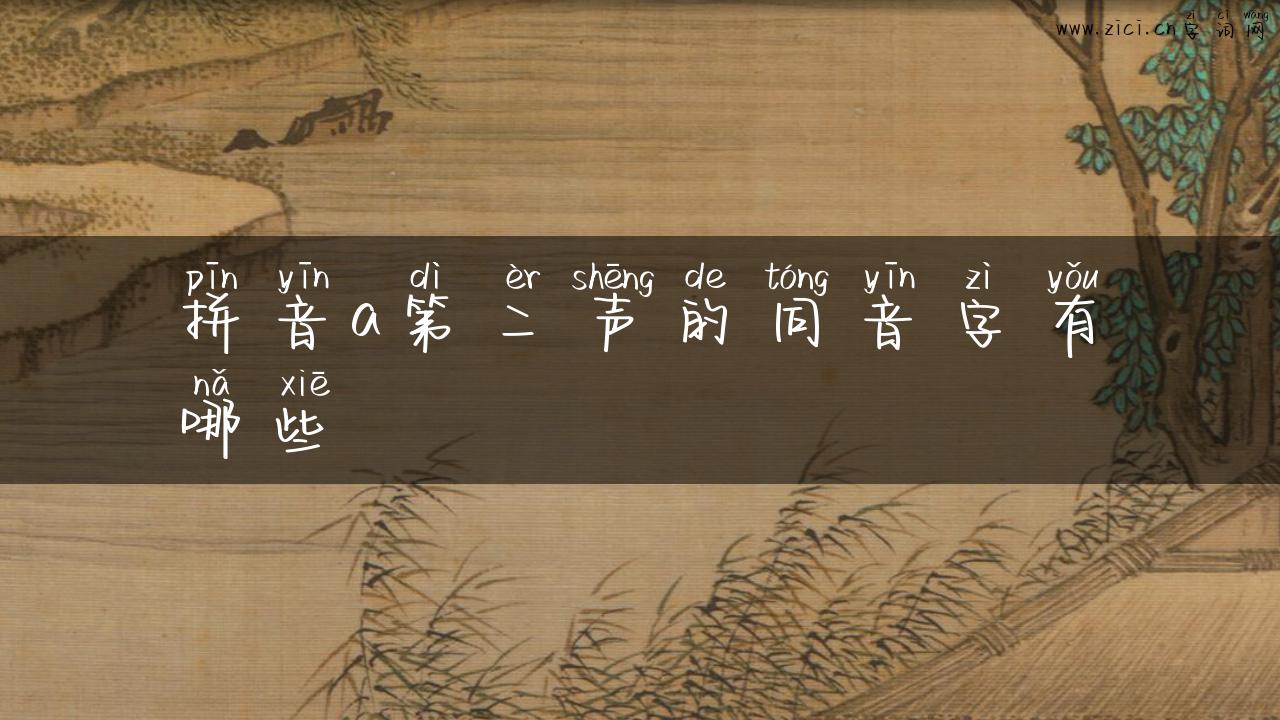 zì cí wǎng
www.zici.cn字词网
pīn yīn dì èr shēng de tóng yīn zì yǒu
拼音a第二声的同音字有
nǎ xiē
哪些